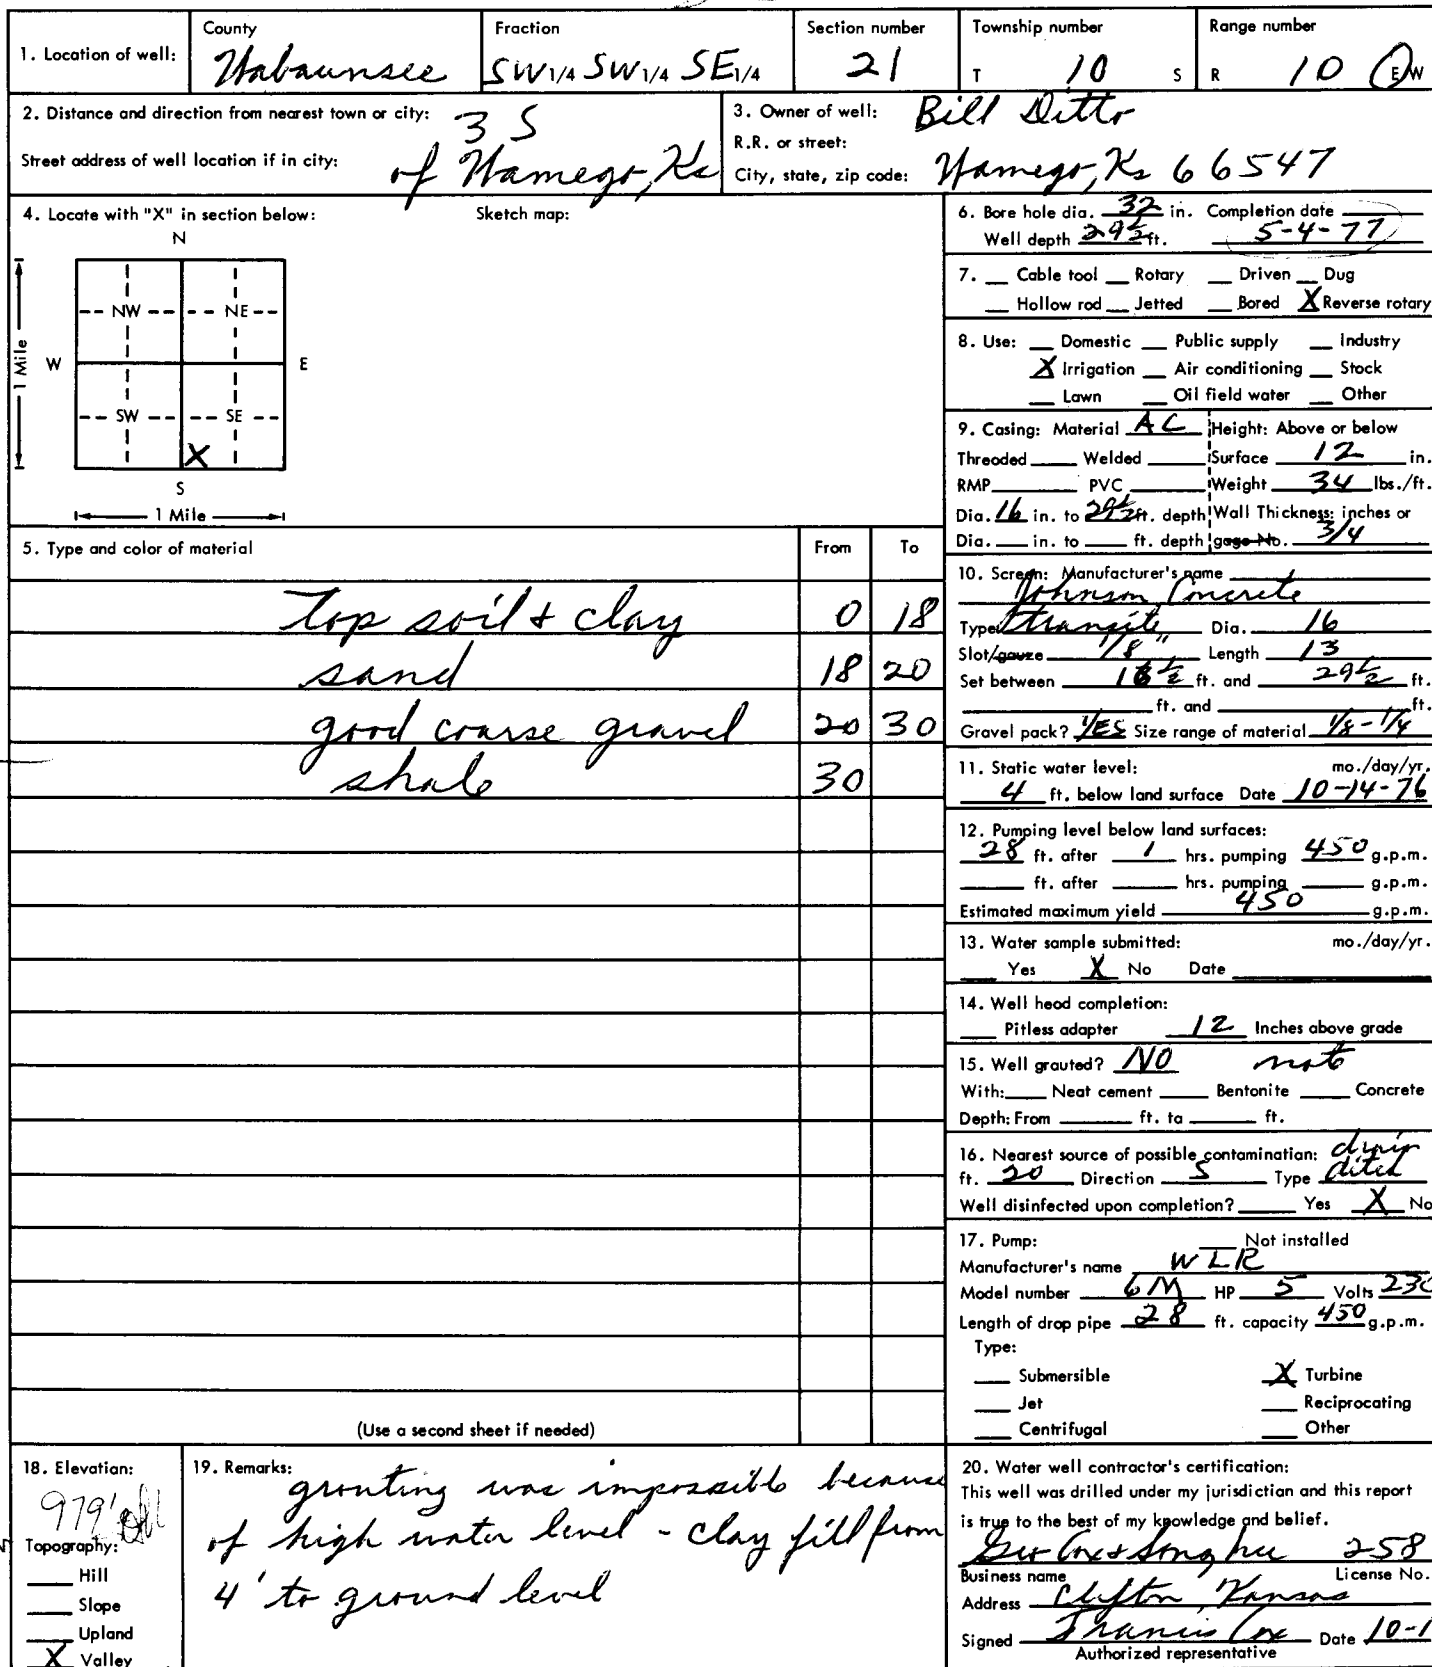 County Fraction Section number Township number Range number
1. Location of well: Wabaunsee SW 1/4 SW 1/4 SE 1/4 21 T 10 S R 10 E W
2. Distance and direction from nearest town or city: 3 S
Street address of well location if in city: of Wamego, Ks
3. Owner of well: Bill Ditto
R.R. or street:
City, state, zip code: Wamego, Ks 66547
4. Locate with "X" in section below: Sketch map:
N
NW NE
W E
1 Mile
SW SE
X
S
1 Mile
5. Type and color of material From To
top soil & clay 0 18
sand 18 20
good coarse gravel 20 30
shale 30
(Use a second sheet if needed)
6. Bore hole dia. 32 in. Completion date
Well depth 29 1/2 ft. 5-4-77
7. __ Cable tool __ Rotary __ Driven __ Dug
__ Hollow rod __ Jetted __ Bored X Reverse rotary
8. Use: __ Domestic __ Public supply __ Industry
X Irrigation __ Air conditioning __ Stock
__ Lawn __ Oil field water __ Other
9. Casing: Material AC Height: Above or below
Threaded ____ Welded ____ Surface 12 in.
RMP ____ PVC ____ Weight 34 lbs./ft.
Dia. 16 in. to 29 1/2 ft. depth Wall Thickness: inches or
Dia. ___ in. to ___ ft. depth gage No. 3/4
10. Screen: Manufacturer's name
Johnson Concrete
Type transite Dia. 16
Slot/gauze 1/8" Length 13
Set between 16 1/2 ft. and 29 1/2 ft.
____ ft. and ____ ft.
Gravel pack? YES Size range of material 1/8 - 1/4
11. Static water level: mo./day/yr.
4 ft. below land surface Date 10-14-76
12. Pumping level below land surfaces:
28 ft. after 1 hrs. pumping 450 g.p.m.
____ ft. after ____ hrs. pumping ____ g.p.m.
Estimated maximum yield 450 g.p.m.
13. Water sample submitted: mo./day/yr.
__ Yes X No Date
14. Well head completion:
__ Pitless adapter 12 Inches above grade
15. Well grouted? NO
With: ___ Neat cement ___ Bentonite ___ Concrete
Depth: From ____ ft. to ____ ft.
16. Nearest source of possible contamination: drain
ft. 20 Direction S Type ditch
Well disinfected upon completion? ___ Yes X No
17. Pump: ___ Not installed
Manufacturer's name WLR
Model number 6M HP 5 Volts 230
Length of drop pipe 28 ft. capacity 450 g.p.m.
Type:
__ Submersible X Turbine
__ Jet __ Reciprocating
__ Centrifugal __ Other
18. Elevation:
979'
Topography:
__ Hill
__ Slope
__ Upland
X Valley
19. Remarks: grouting was impossible because
of high water level - clay fill from
4' to ground level
20. Water well contractor's certification:
This well was drilled under my jurisdiction and this report
is true to the best of my knowledge and belief.
Geo Cox & Sons 258
Business name License No.
Address Clifton, Kansas
Signed Francis Cox Date 10-1
Authorized representative